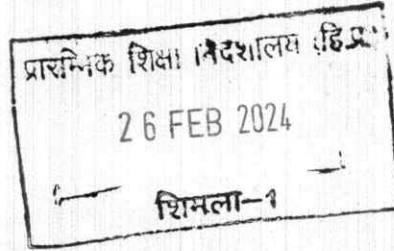 प्रारम्भिक शिक्षा निदेशालय (हि.प्र.)
26 FEB 2024
शिमला-1